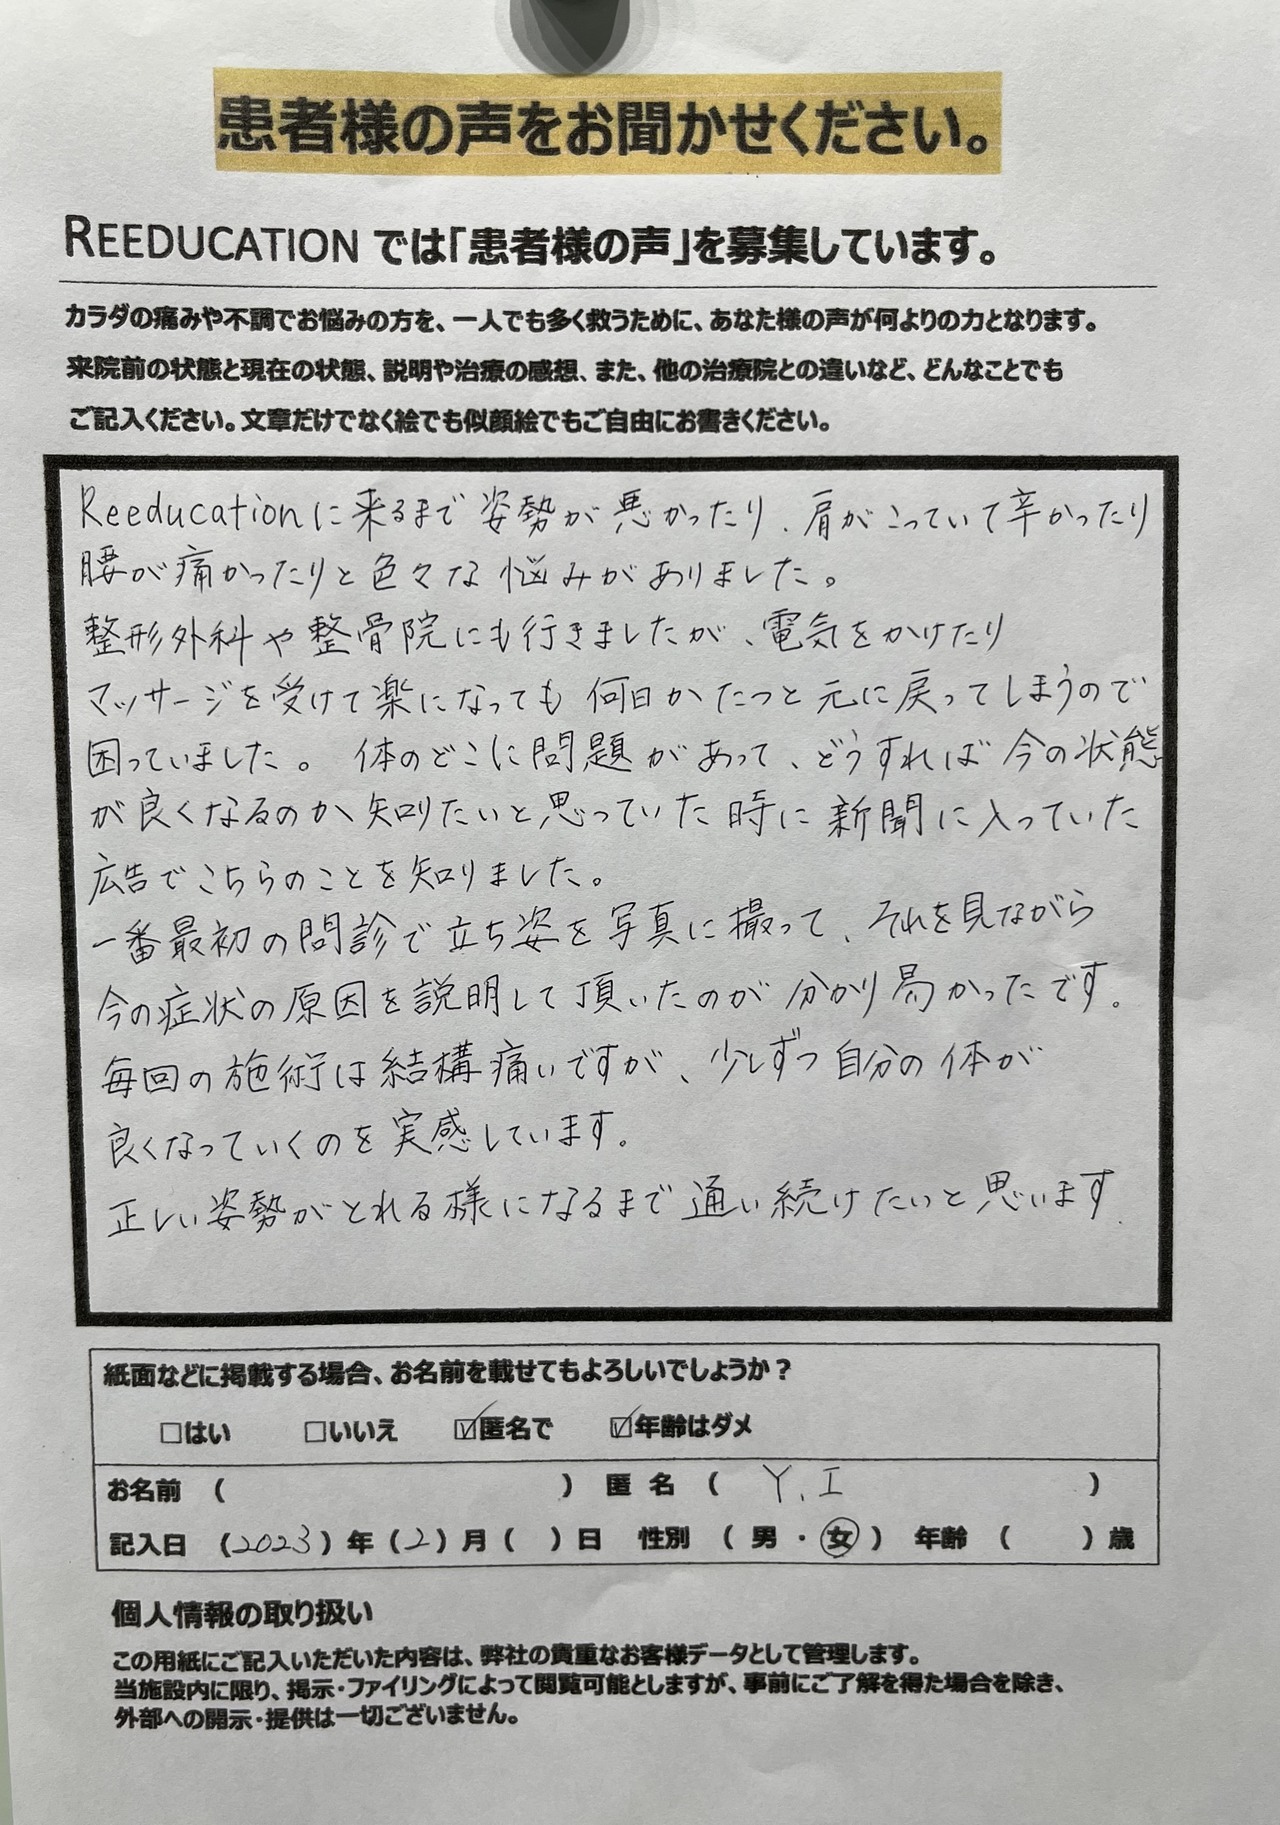 患者様の声をお聞かせください。
REEDUCATION では「患者様の声」を募集しています。
カラダの痛みや不調でお悩みの方を、一人でも多く救うために、あなた様の声が何よりの力となります。
来院前の状態と現在の状態、説明や治療の感想、また、他の治療院との違いなど、どんなことでも
ご記入ください。文章だけでなく絵でも似顔絵でもご自由にお書きください。
Reeducationに来るまで姿勢が悪かったり、肩がこっていて辛かったり
腰が痛かったりと色々な悩みがありました。
整形外科や整骨院にも行きましたが、電気をかけたり
マッサージを受けて楽になっても何日かたつと元に戻ってしまうので
困っていました。体のどこに問題があって、どうすれば今の状態
が良くなるのか知りたいと思っていた時に新聞に入っていた
広告でこちらのことを知りました。
一番最初の問診で立ち姿を写真に撮って、それを見ながら
今の症状の原因を説明して頂いたのが分かり易かったです。
毎回の施術は結構痛いですが、少しずつ自分の体が
良くなっていくのを実感しています。
正しい姿勢がとれる様になるまで通い続けたいと思います.
紙面などに掲載する場合、お名前を載せてもよろしいでしょうか？
□はい □いいえ ☑匿名で ☑年齢はダメ
お名前 ( ) 匿名 ( Y.I )
記入日 (2023)年(2)月( )日 性別 (男・女) 年齢 ( )歳
個人情報の取り扱い
この用紙にご記入いただいた内容は、弊社の貴重なお客様データとして管理します。
当施設内に限り、掲示・ファイリングによって閲覧可能としますが、事前にご了解を得た場合を除き、
外部への開示・提供は一切ございません。